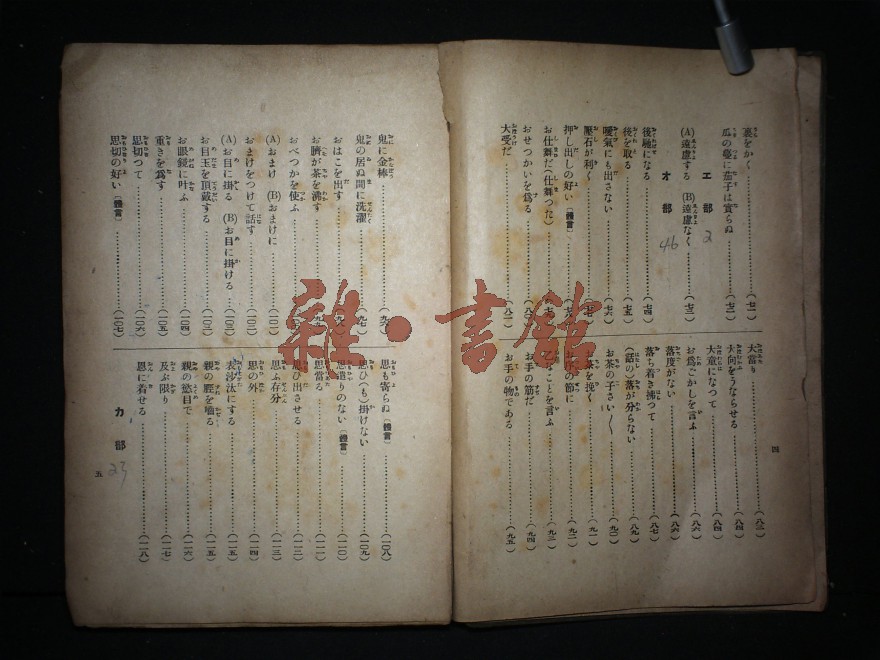 裏をかく……(七二)
瓜の蔓に茄子は實らぬ……(七三)
エ部 2
(A)遠慮する (B)遠慮なく……(七三)
オ部 46
後楯になる……(七四)
後を取る……(七五)
噯氣にも出さない……(七六)
壓石が利く……(七七)
押し出しの好い〔體言〕……(七八)
お仕舞だ(仕舞つた)……(七九)
おせつかいを爲る……(八〇)
大受だ……(八一)
大當り……(八三)
大向をうならせる……(八四)
大童になつて……(八四)
お爲ごかしを言ふ……(八六)
落度がない……(八六)
落ち着き拂つて……(八七)
(話の)落が分らない……(八九)
お茶の子さい〱……(九〇)
お茶を挽く……(九一)
の節に……(九二)
なことを言ふ……(九三)
お手の筋だ……(九四)
お手の物である……(九五)
四
鬼に金棒……(九六)
鬼の居ぬ間に洗濯……(九七)
おはこを出す……(九八)
お臍が茶を沸す……(九九)
おべつかを使ふ
(A)おまけ (B)おまけに……(一〇一)
おまけをつけて話す……(一〇二)
(A)お目に掛る (B)お目に掛ける……(一〇三)
お目玉を頂戴する……(一〇三)
お眼鏡に叶ふ……(一〇四)
重きを爲す……(一〇五)
思切つて……(一〇六)
思切の好い〔體言〕……(一〇七)
思も寄らぬ〔體言〕……(一〇八)
思ひ(も)掛けない……(一〇九)
思遣りのない〔體言〕……(一一〇)
思當る……(一一一)
思ひ出させる……(一一二)
思ふ存分……(一一三)
思の外……(一一四)
表沙汰にする……(一一五)
親の脛を嚙る……(一一五)
親の慾目で……(一一六)
及ぶ限り……(一一七)
恩に着せる……(一一八)
カ部 23
五
雜·書館